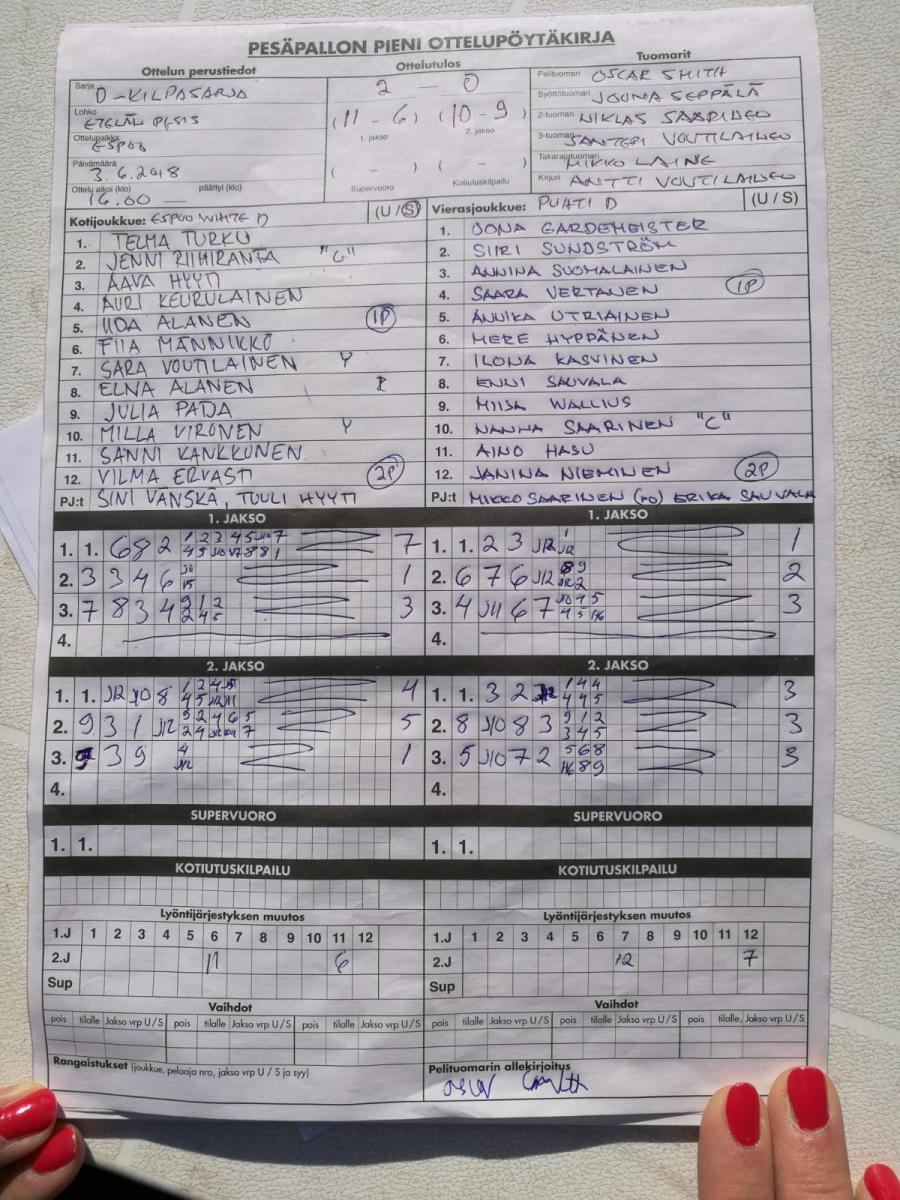 PESÄPALLON PIENI OTTELUPÖYTÄKIRJA
Ottelun perustiedot
Sarja D-KILPASARJA
Lohko ETELÄN PESIS
Ottelupaikka ESPOO
Päivämäärä 3.6.2018
Ottelu alkoi (klo) 16.00 päättyi (klo) —
Ottelutulos
2 — 0
(11 - 6) (10 - 9)
1. jakso 2. jakso
( - ) ( - )
Supervuoro Kotiutuskilpailu
Tuomarit
Pelituomari OSCAR SMITH
Syöttötuomari JOONA SEPPÄLÄ
2-tuomari NIKLAS SAARINEN
3-tuomari SANTERI VOUTILAINEN
Takarajatuomari MIKKO LAINE
Kirjuri ANTTI VOUTILAINEN
Kotijoukkue: ESPOO WHITE D (U / S)
1. TELMA TURKU
2. JENNI RIIHIRANTA "C"
3. AAVA HYYTI
4. AURI KEURULAINEN
5. UDA ALANEN 1P
6. FIIA MÄNNIKKÖ
7. SARA VOUTILAINEN Y
8. ELNA ALANEN
9. JULIA PADA
10. MILLA VIRONEN Y
11. SANNI KANKKUNEN
12. VILMA ERVASTI 2P
PJ:t SINI VÄNSKÄ, TUULI HYYTI
Vierasjoukkue: PUHTI D (U / S)
1. OONA GARDEMEISTER
2. SIIRI SUNDSTRÖM
3. ANNINA SUOMALAINEN
4. SAARA VERTANEN 1P
5. ANNIKA UTRIAINEN
6. MERE HYPPÄNEN
7. ILONA KASVINEN
8. ENNI SAUVALA
9. MIISA WALLIUS
10. NANNA SAARINEN "C"
11. AINO HASU
12. JANINA NIEMINEN 2P
PJ:t MIKKO SAARINEN (PO) ERIKA SAUVALA
1. JAKSO
1. 1. 6 8 2 7
2. 3 3 4 6 1
3. 7 8 3 4 3
4.
1. JAKSO
1. 1. 2 3 J12 1
2. 6 7 6 J12 2
3. 4 J11 6 7 3
4.
2. JAKSO
1. 1. J12 J10 8 4
2. 9 3 1 J12 5
3. 3 9 1
4.
2. JAKSO
1. 1. 3 2 3
2. 8 J10 8 3 3
3. 5 J10 7 2 3
4.
SUPERVUORO
1. 1.
SUPERVUORO
1. 1.
KOTIUTUSKILPAILU
KOTIUTUSKILPAILU
Lyöntijärjestyksen muutos
1.J 1 2 3 4 5 6 7 8 9 10 11 12
2.J 11 6
Sup
Lyöntijärjestyksen muutos
1.J 1 2 3 4 5 6 7 8 9 10 11 12
2.J 12 7
Sup
Vaihdot
pois tilalle Jakso vrp U/S pois tilalle Jakso vrp U/S pois tilalle Jakso vrp U/S
Vaihdot
pois tilalle Jakso vrp U/S pois tilalle Jakso vrp U/S pois tilalle Jakso vrp U/S
Rangaistukset (joukkue, pelaaja nro, jakso vrp U / S ja syy)
Pelituomarin allekirjoitus